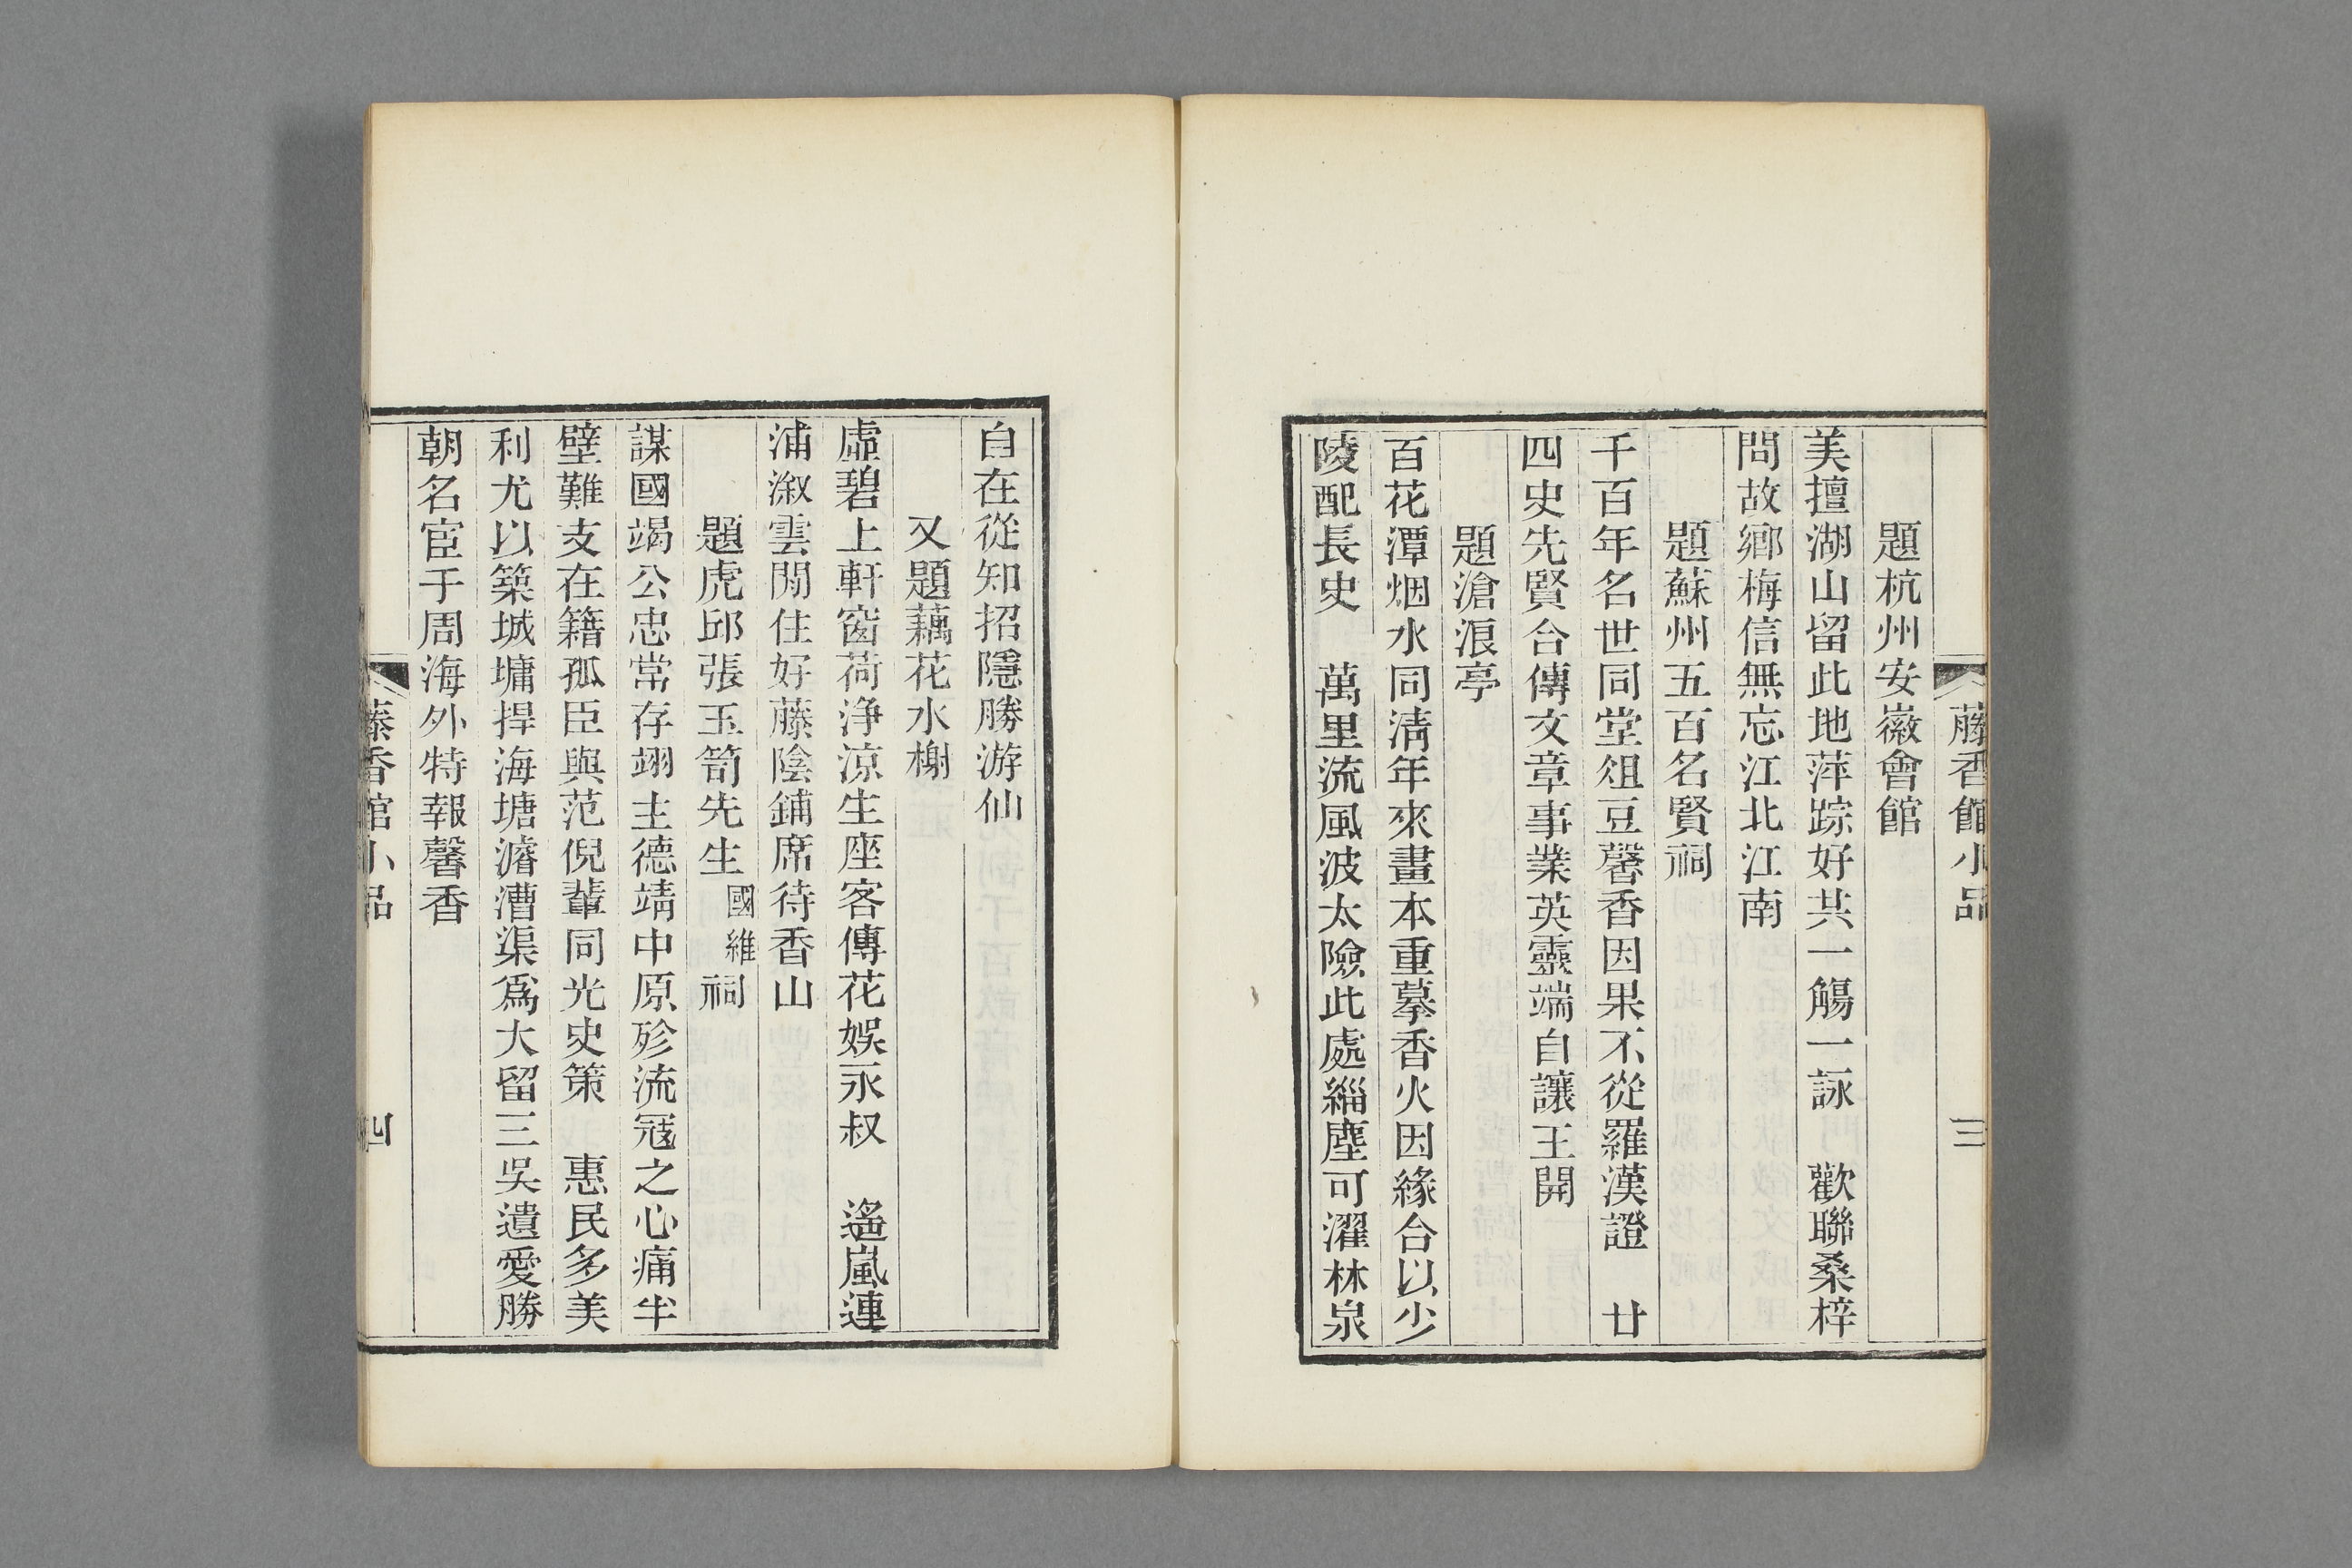 藤香館小品
三
題杭州安徽會館
美擅湖山留此地萍踪好共一觴一詠　歡聯桑梓
問故鄉梅信無忘江北江南
題蘇州五百名賢祠
千百年名世同堂俎豆馨香因果不從羅漢證　廿
四史先賢合傳文章事業英靈端自讓王開
題滄浪亭
百花潭烟水同清年來畫本重摹香火因緣合以少
陵配長史　萬里流風波太險此處緇塵可濯林泉
自在從知招隱勝游仙
又題藕花水榭
虛碧上軒窗荷浄涼生座客傳花娛永叔　遙嵐連
浦漵雲閒住好藤陰鋪席待香山
題虎邱張玉笥先生國維祠
謀國竭公忠常存翊主德靖中原殄流寇之心痛半
壁難支在籍孤臣與范倪輩同光史策　惠民多美
利尤以築城墉捍海塘濬漕渠爲大留三吳遺愛勝
朝名宦于周海外特報馨香
藤香館小品
四